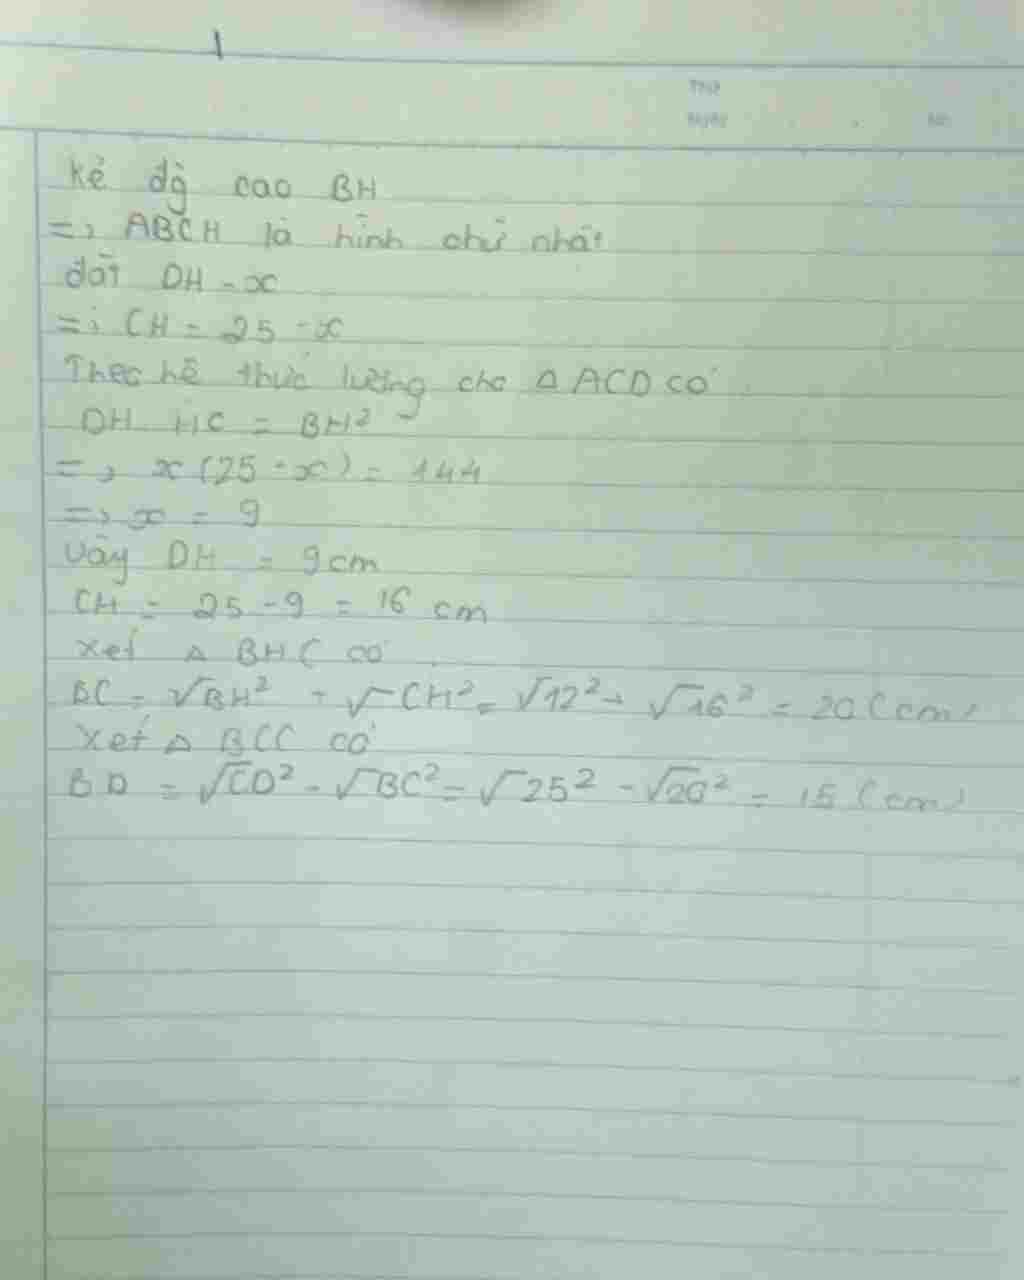 Thứ
Ngày No.
Kẻ đg cao BH
=> ABCH là hình chữ nhật
đặt DH = x
=> CH = 25 - x
Theo hệ thức lường cho Δ ACD có
DH . HC = BH²
=> x (25 - x) = 144
=> x = 9
Vậy DH = 9cm
CH = 25 - 9 = 16 cm
Xét Δ BHC có
BC = √BH² + √CH² = √12² + √16² = 20 (cm)
Xét Δ BCC có
BD = √CD² - √BC² = √25² - √20² = 15 (cm)